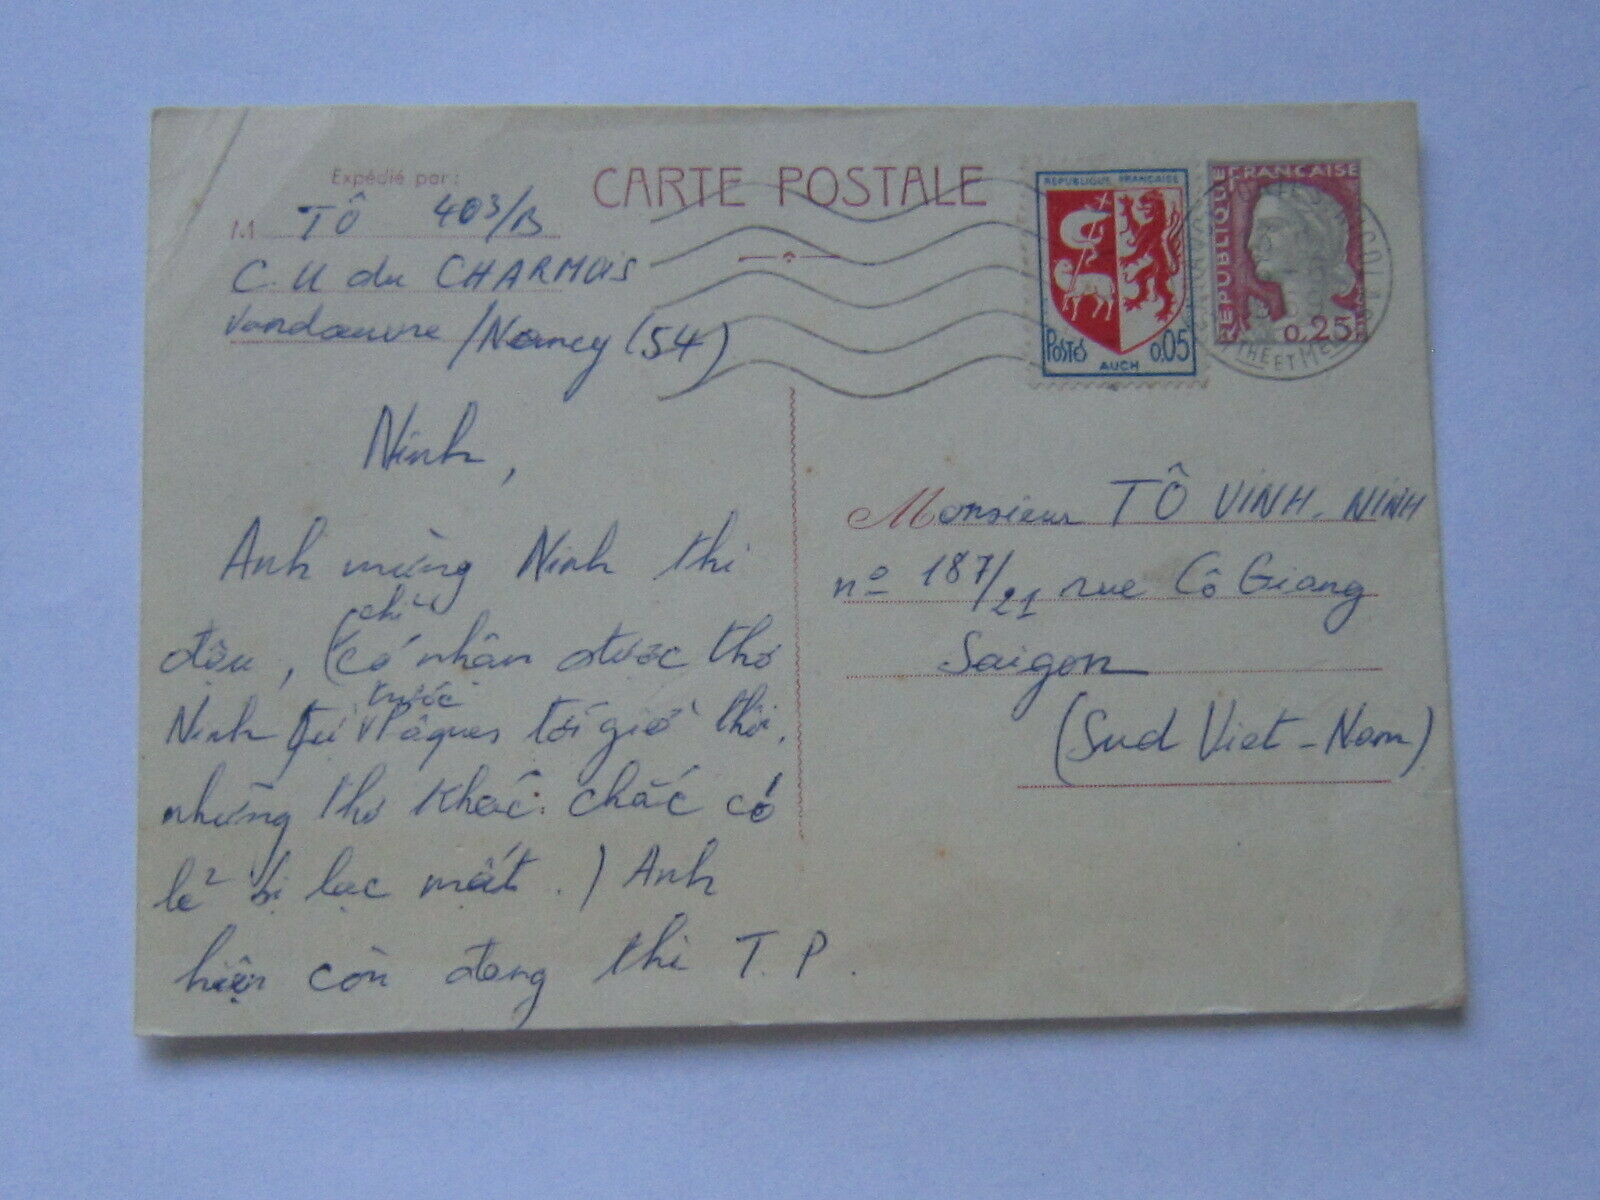 Expédié par:
CARTE POSTALE
M TÔ 403/B
C.U du CHARMOIS
Vandœuvre/Nancy (54)
REPUBLIQUE FRANÇAISE
POSTES 0,05
AUCH
REPUBLIQUE FRANÇAISE
0,25
THE ET M
Ninh,
Anh mừng Ninh thi
chỉ
đậu, (có nhận được thơ
trước
Ninh từ Pâques tới giờ thôi,
những thơ khác chắc có
lẽ bị lạc mất.) Anh
hiện còn đang thi T.P.
Monsieur TÔ VINH-NINH
nº 187/21 rue Cô Giang
Saigon
(Sud Viet-Nam)